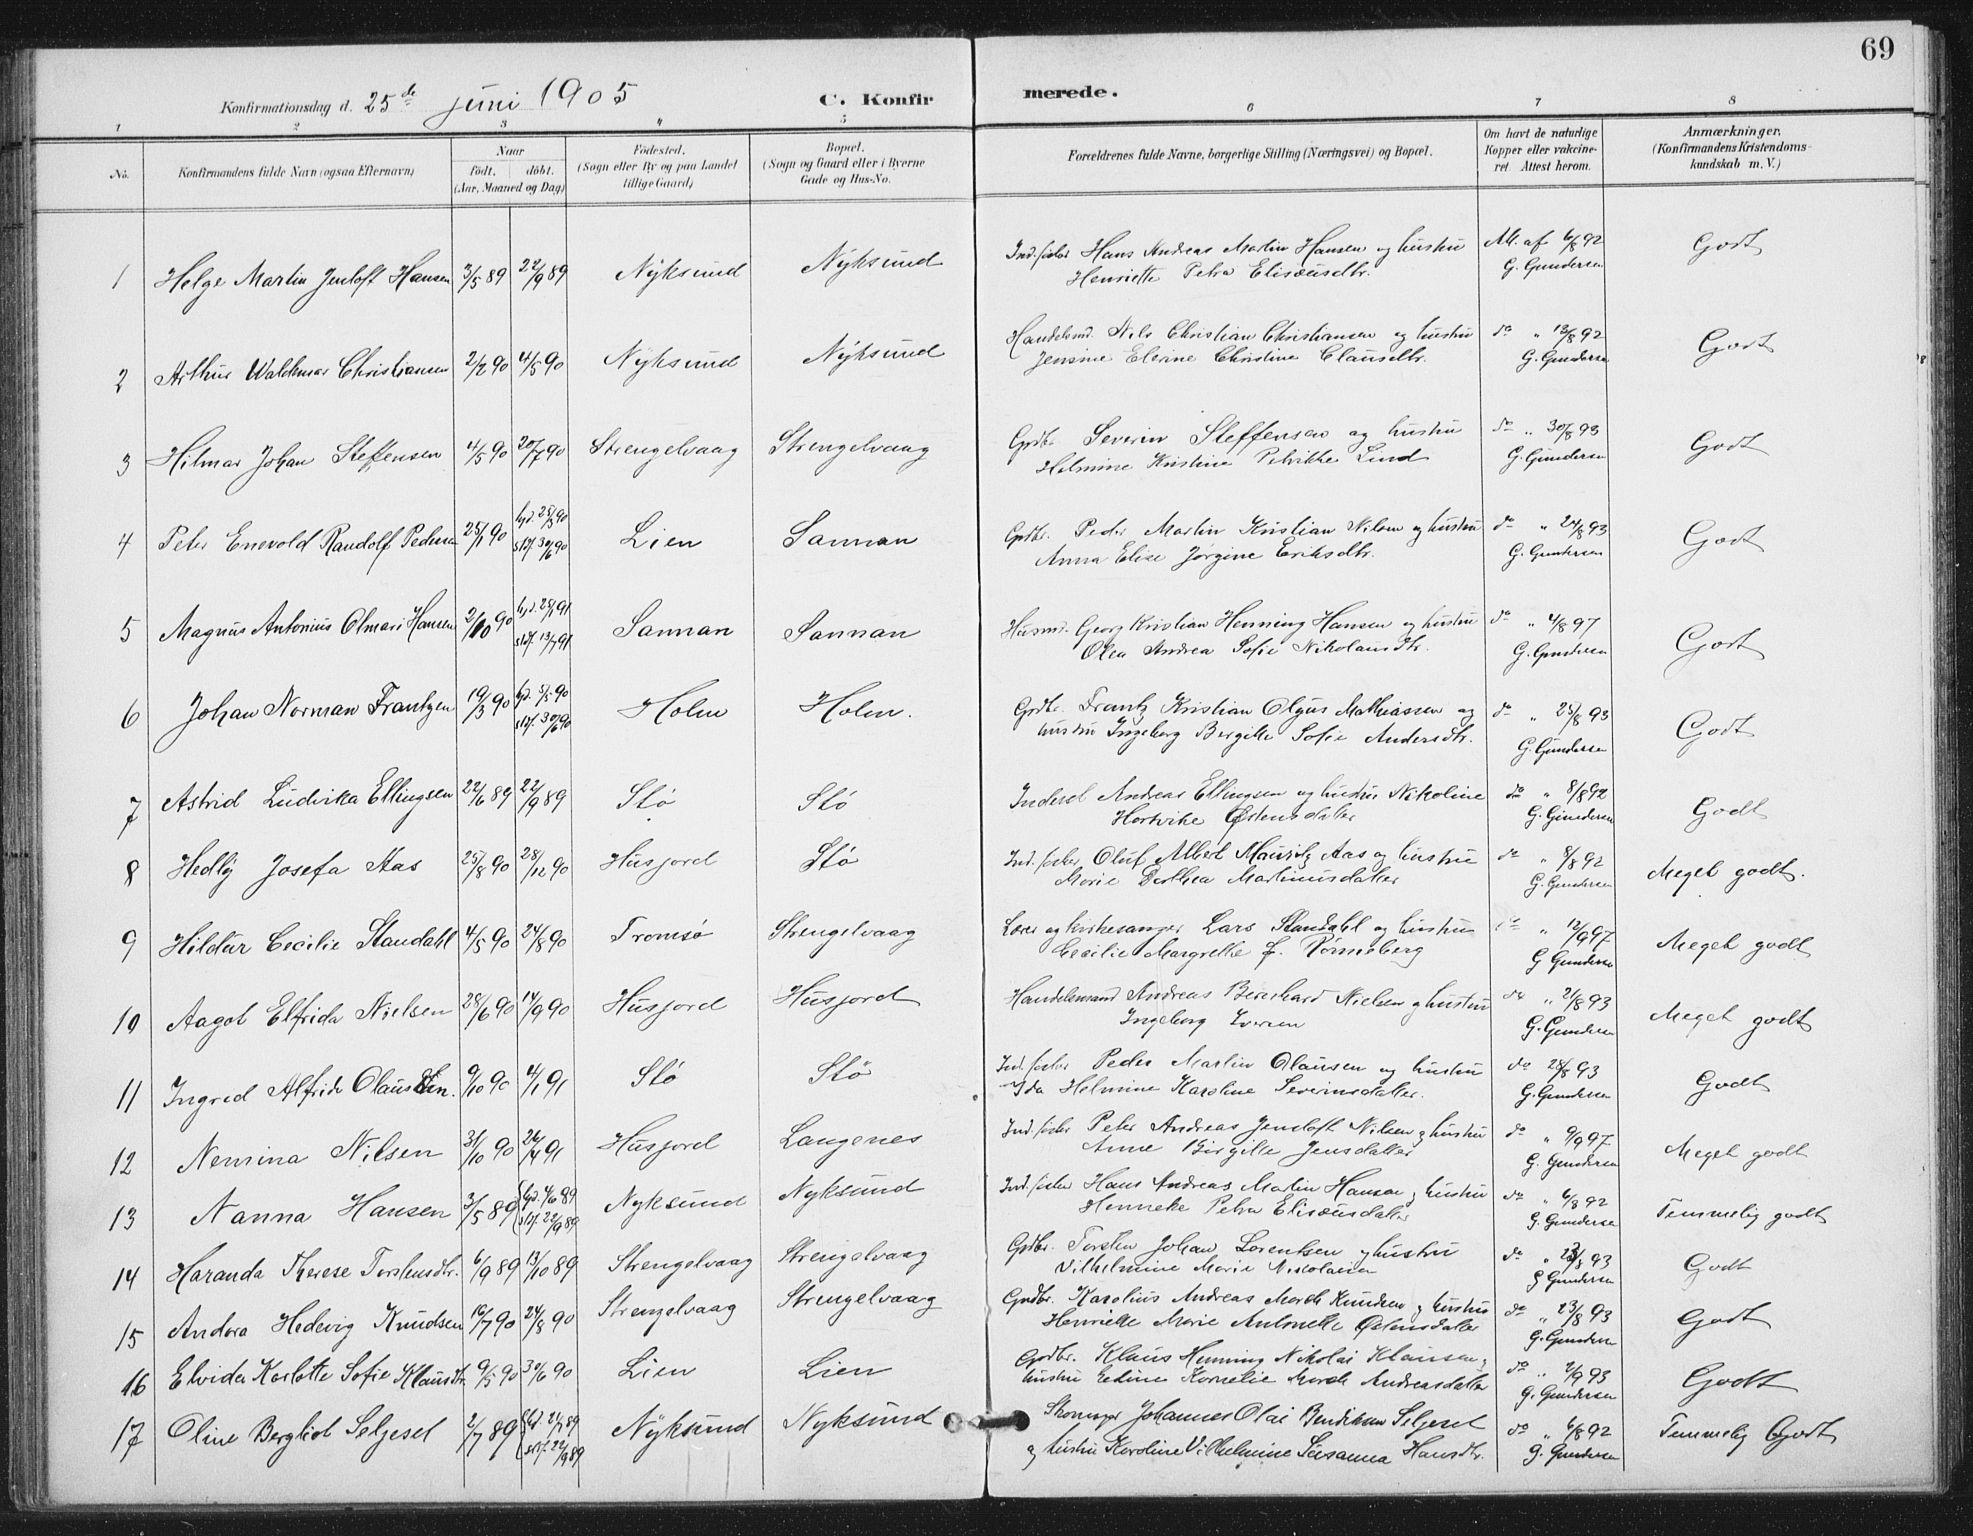 69
Konfirmationsdag d. 25de juni 1905 C. Konfirmerede.
1 2 3 4 5 6 7 8
No. Konfirmandens fulde Navn (ogsaa Efternavn) Naar födt. döbt. (Aar, Maaned og Dag) Födested. (Sogn eller By og paa Landet tillige Gaard) Bopæl. (Sogn og Gaard eller i Byerne Gade og Hus-No. Forældrenes fulde Navne, borgerlige Stilling (Næringsvei) og Bopæl. Om havt de naturlige Kopper eller vaccineret. Attest herom. Anmærkninger. (Konfirmandens Kristendomskundskab m. V.)
1 Helge Martin Jentoft Hansen 3/5 89 22/9 89 Nyksund Nyksund Ind. fisker Hans Andreas Martin Hansen og hustru Att. af 6/8 92 Godt
Henriette Petra Elisæusdtr. G. Gundersen
2 Arthur Waldemar Christiansen 2/2 90 4/5 90 Nyksund Nyksund Handelsmd. Nils Christian Christiansen og hustru do " 13/8 92 Godt
Jensine Elerine Christine Clausdtr. G. Gundersen
3 Hilmar Johan Steffensen 4/5 90 20/7 90 Strengelvaag Strengelvaag Grdbr. Severin Steffensen og hustru do " 30/8 93 Godt
Helmine Kristine Petrikke Lind G. Gundersen
4 Peter Enevold Randolf Pedersen 25/1 90 hjd. 25/3 90 Lien Sannan Grdbr. Peder Martin Kristian Nilsen og hustru do " 24/8 93 Godt
stdf. 30/6 90 Anna Elise Jørgine Eriksdtr. G. Gundersen
5 Magnus Antonius Olmari Hansen 2/10 90 hjd. 25/1 91 Sannan Sannan Husmd. Georg Kristian Henning Hansen og hustru do " 4/8 97 Godt
stdf. 13/7 91 Olea Andrea Sofie Nikolausdtr. G. Gundersen
6 Johan Norman Frantzen 19/3 90 hjd. 5/5 90 Holm Holm. Grdbr. Frantz Kristian Olgus Mathiassen og do " 25/8 93 Godt
stdf. 30/6 90 hustru Ingeborg Bergitte Sofie Andersdtr. G. Gundersen
7 Astrid Ludvika Ellingsen 22/6 89 22/9 89 Stø Stø Inderst Andreas Ellingsen og hustru Nikoline do " 8/8 92 Godt
Hartvike Østensdatter G. Gundersen
8 Hedly Josefa Aas 25/8 90 28/12 90 Husjord Stø Ind. fisker Oluf Albert Mauritz Aas og hustru do " 8/8 92 Meget godt.
Marie Dorthea Martinusdatter G. Gundersen
9 Hildur Cecilie Standahl 4/5 90 24/8 90 Tromsø Strengelvaag Lærer og kirkesanger Lars Standahl og hustru do " 12/9 97 Meget godt
Cecilie Margrethe f. Rønneberg G Gundersen
10 Aagot Elfrida Nielsen 28/6 90 14/9 90 Husjord Husjord Handelsmand Andreas Bernhard Nielsen og hustru do " 21/8 93 Meget godt
Ingeborg Iversen G. Gundersen
11 Ingred Alfride Olausen. 9/10 90 4/1 91 Stø Stø Ind. fisker Peder Martin Olausen og hustru do 28/8 93 Godt
Ida Helmine Karoline Severinsdatter. G. Gundersen
12 Nemina Nilsen 31/10 90 26/4 91 Husjord Langenes Ind. fisker Peter Andreas Jentoft Nilsen og hustru do " 9/9 97 Meget godt
Anne Birgitte Jensdatter G. Gundersen
13 Nanna Hansen 3/5 89 hjd. 4/6 89 Nyksund Nyksund Ind. fisker Hans Andreas Martin Hansen og hustru do " 6/8 92 Temmelig godt
stdf. 22/9 89 Henneke Petra Elisæusdatter G. Gundersen
14 Haranda Therese Torstensdtr. 6/9 89 13/10 89 Strengelvaag Strengelvaag Grdbr. Torsten Johan Lorentsen og hustru do " 23/8 93 Godt
Vilhelmine Marie Nicolaisen G Gundersen
15 Andora Hedevig Knudsen 16/7 90 24/8 90 Strengelvaag Strengelvaag Grdbr. Karolius Andreas Mork Knudsen og hustru do " 23/8 93 Godt
Henrikke Marie Antonette Østensdatter G. Gundersen
16 Elvida Karlotte Sofie Klausdtr. 9/5 90 30/6 90 Lien Lien Grdbr. Klaus Henning Nikolai Klausen og do " 2/9 93 Godt
hustru Edine Kornelie Mork Andreasdatter G. Gundersen
17 Oline Bergliot Seljesel 2/7 89 hjd. 21/7 89 Nyksund Nyksund Skomager Johannes Olai Bendiksen Seljesel do " 6/8 92 Temmelig Godt
stdf. 22/9 89 og hustru Karoline Vilhelmine Susanna Hansdtr. G. Gundersen